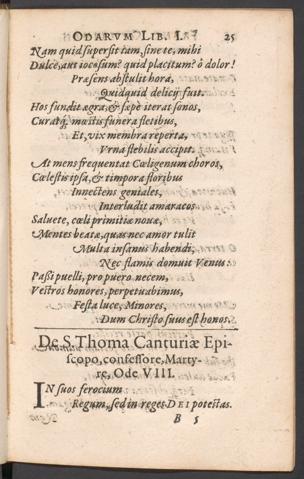 ODARVM LIB. I. 25
Nam quid superſit tam, ſine te, mihi
Dulce, aut iocoſum? quid placitum? ô dolor!
Præſens abſtulit hora,
Quidquid delicij fuit.
Hos fundit ægra, & ſæpè iterat ſonos,
Curatq́; mœſtis funera fletibus,
Et, vix membra reperta,
Vrna flebilis accipit.
At mens frequentat Cœligenûm choros,
Cœleſtis ipſa, & tempora floribus
Innectens geniales,
Interludit amaracos.
Saluete, cœli primitiæ nouæ,
Mentes beatæ, quas nec amor tulit
Multa inſanus habendi,
Nec flamis domuit Venus:
Paſſi puelli, pro puero necem,
Veſtros honores, perpetuabimus,
Feſta luce, Minores,
Dum Chriſto ſuus eſt honos.
De S. Thoma Canturiæ Epi-
ſcopo, confeſſore, Marty-
re, Ode VIII.
IN ſuos ferocium
Regum, ſed in reges DEI poteſtas.
B 5